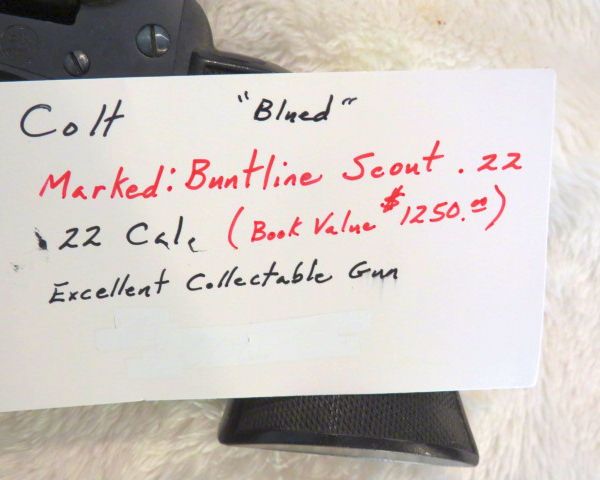 Colt "Blued"
Marked: Buntline Scout .22
.22 Cal. (Book Value $1250.00)
Excellent Collectable Gun